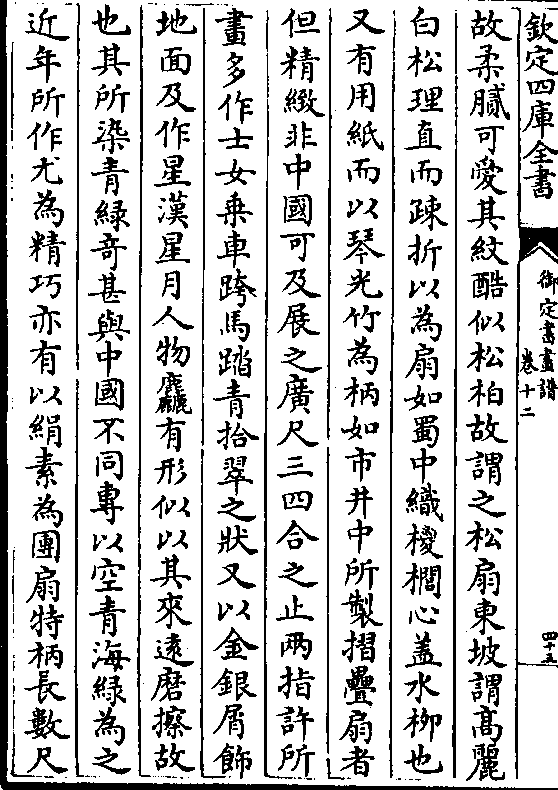 欽定四庫全書
御定書畫譜
卷十二
四十五
故柔膩可愛其紋酷似松柏故謂之松扇東坡謂髙麗
白松理直而疎折以為扇如蜀中織椶櫚心蓋水柳也
又有用紙而以琴光竹為柄如市井中所製摺疊扇者
但精緻非中國可及展之廣尺三四合之止兩指許所
畫多作士女乗車跨馬踏青拾翠之狀又以金銀屑飾
地面及作星漢星月人物麤有形似以其來逺磨擦故
也其所染青緑竒甚與中國不同專以空青海緑為之
近年所作尤為精巧亦有以絹素為團扇特柄長數尺